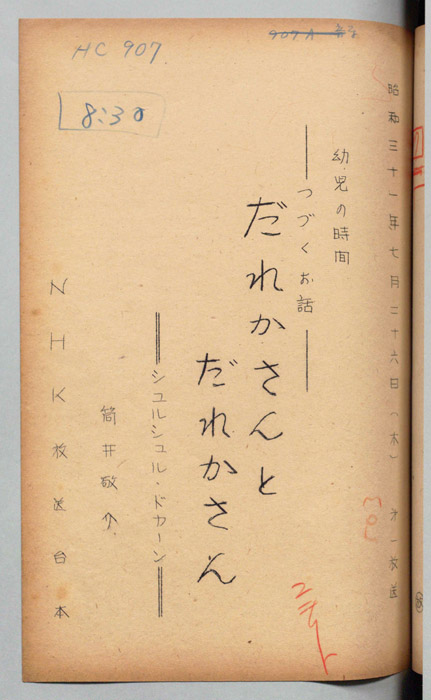 HC 907.
8:30
昭和三十一年七月二十六日(木) 第一放送
幼児の時間
―― つづくお話 ――
だれかさんと
だれかさん
══ シュルシュル・ドカーン ══
筒井敬介
NHK放送台本